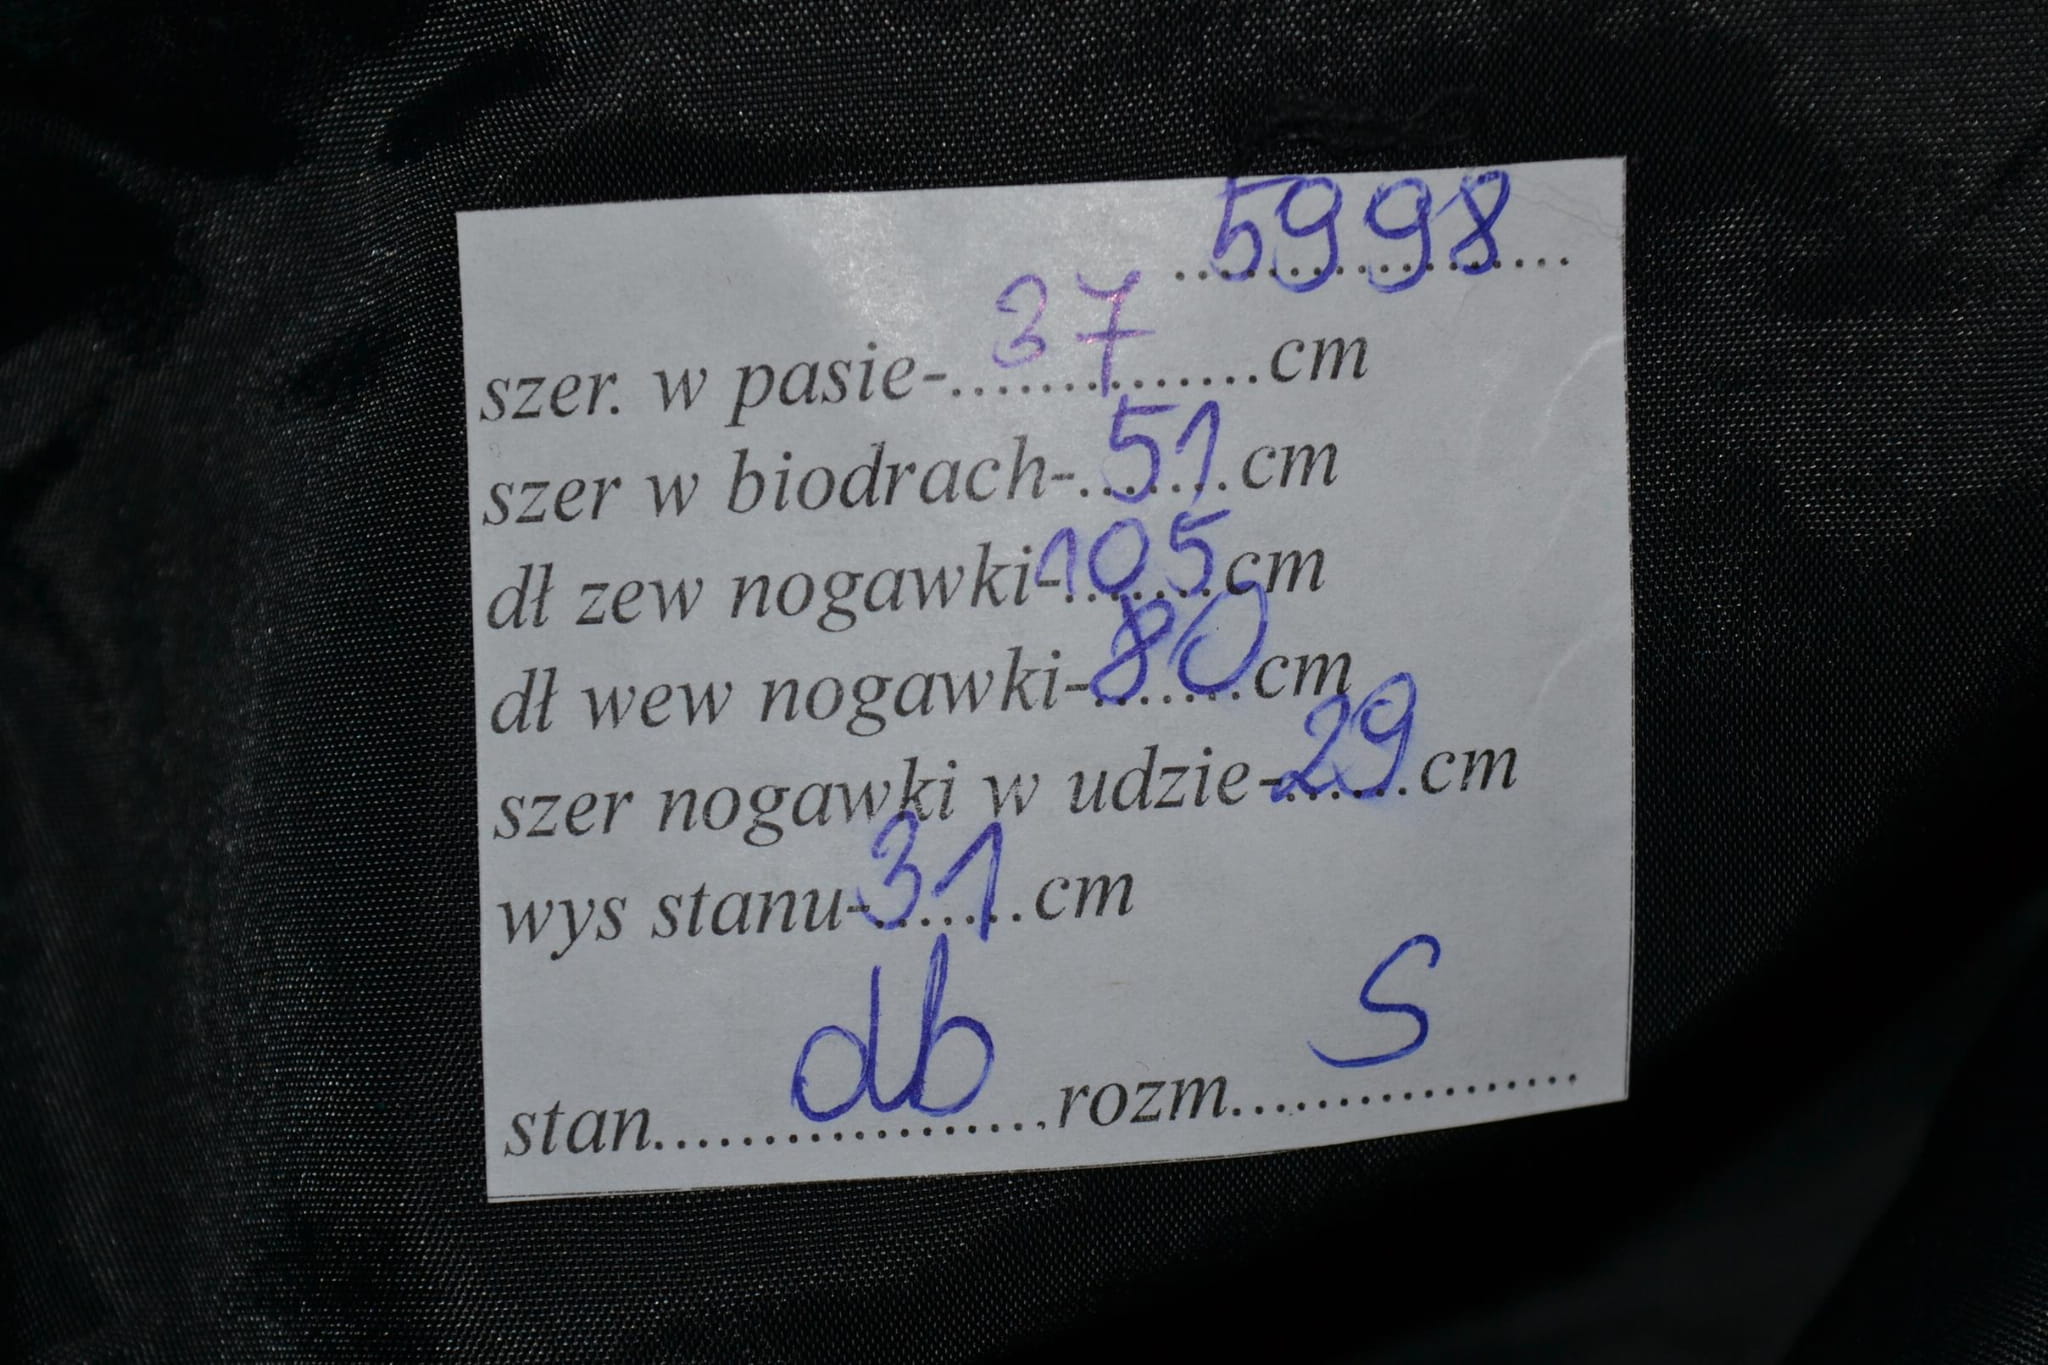 5998
szer. w pasie-37cm
szer w biodrach-51cm
dł zew nogawki-105cm
dł wew nogawki-80cm
szer nogawki w udzie-29cm
wys stanu-31cm
stan db rozm S